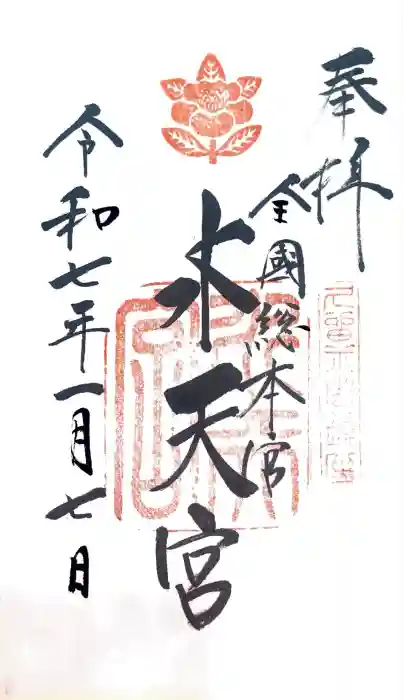 奉拝
全国総本宮
水天宮
令和七年一月七日